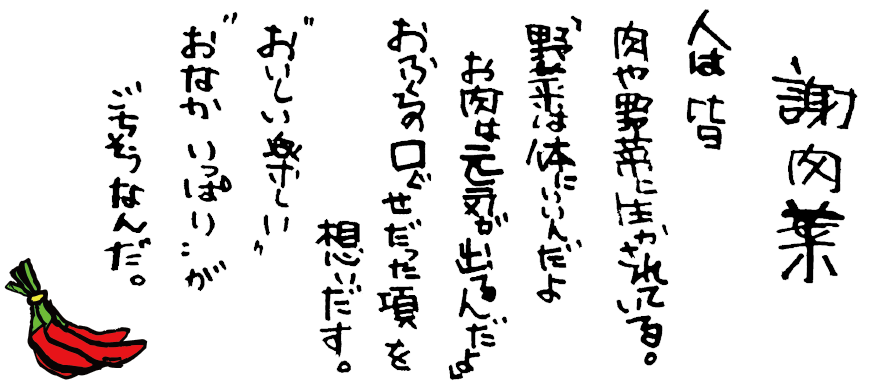 謝肉葉
人は皆
肉や野菜に生かされている。
「野菜は体にいいんだよ
お肉は元気が出るんだよ」
おふくろの口ぐせだった項を
想いだす。
"おいしい楽しい"
"おなかいっぱい"が
ごちそうなんだ。